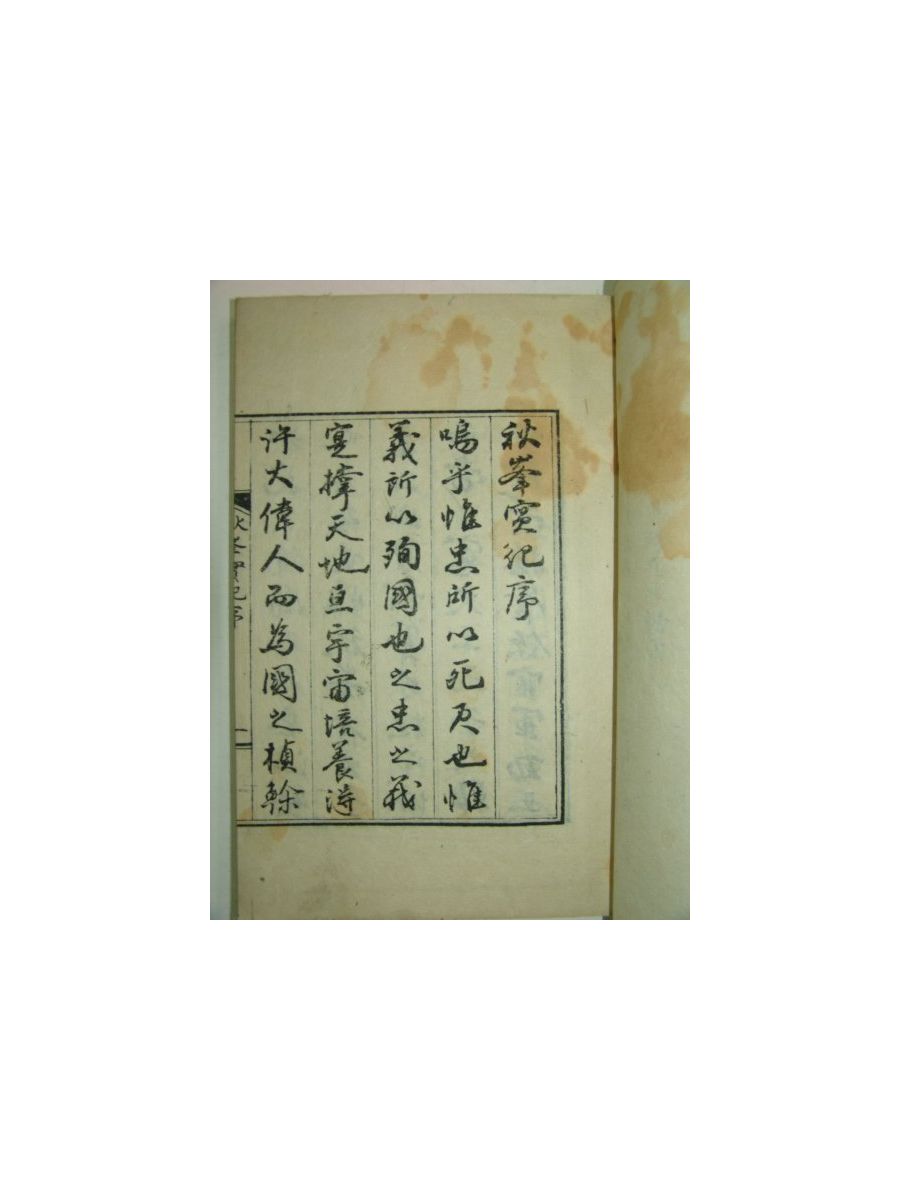 秋峯實紀序
嗚乎惟忠所以死也惟
義所以殉國也之忠之義
寔撑天地亘宇宙培養淂
許大偉人而為國之楨榦
秋峯實紀序
一